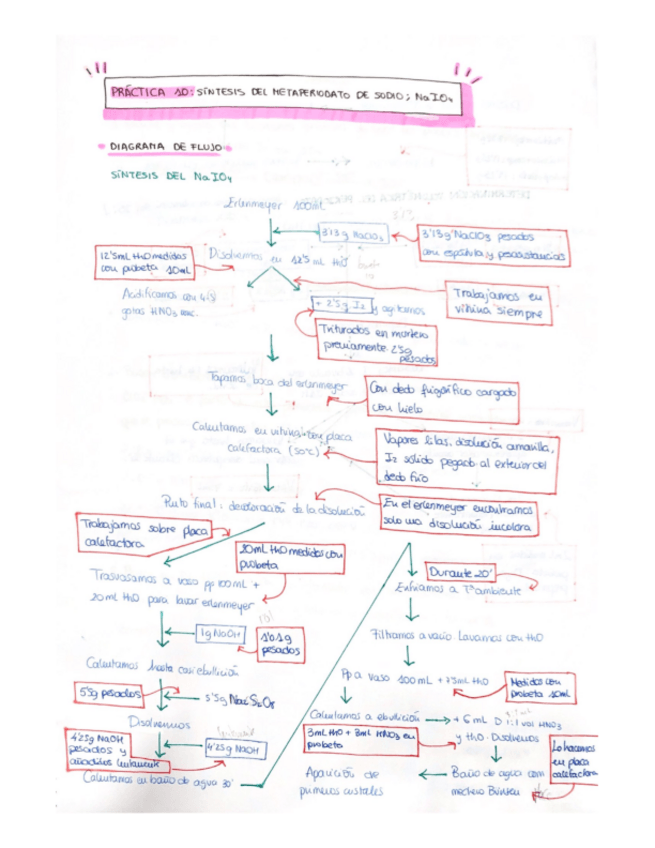 PRÁCTICA 10: SÍNTESIS DEL METAPERIODATO DE SODIO; NaIO4
DIAGRAMA DE FLUJO
SÍNTESIS DEL NaIO4
Erlenmeyer 100mL
3'13g NaClO3
3'13g NaClO3 pesados
con espátula y pesasustancias
12'5mL H2O medidos
con probeta 10mL
Disolvemos en 12'5 mL H2O
Trabajamos en
vitrina siempre
Acidificamos con 4
gotas HNO3 conc.
+ 2'5g I2 y agitamos
Triturados en mortero
previamente 2'5g
pesados
Tapamos boca del erlenmeyer
Con dedo frigorífico cargado
con hielo
Calentamos en vitrina con placa
calefactora (50ºC)
Vapores lilas, disolución amarilla,
I2 sólido pegado al exterior del
dedo frío
Punto final: decoloración de la disolución
En el erlenmeyer encontramos
solo una disolución incolora
Trabajamos sobre placa
calefactora
20mL H2O medidos con
probeta
Trasvasamos a vaso pp 100mL +
20mL H2O para lavar erlenmeyer
Durante 20'
Enfriamos a Tª ambiente
1g NaOH
1'01g
pesados
Filtramos a vacío Lavamos con H2O
Calentamos hasta casi ebullición
Pp a vaso 100mL + 75mL H2O
Medidos con
probeta 10mL
5'5g pesados
5'5g Na2S2O8
Disolvemos
Calentamos a ebullición
+ 6 mL D 1:1 vol HNO3
y H2O. Disolvemos
3mL H2O + 3mL HNO3 en
probeta
4'25g NaOH
pesados y
añadidos lentamente
4'25g NaOH
Lo hacemos
en placa
calefactora
Calentamos en baño de agua 30'
Aparición de
primeros cristales
Baño de agua con
mechero Bunsen